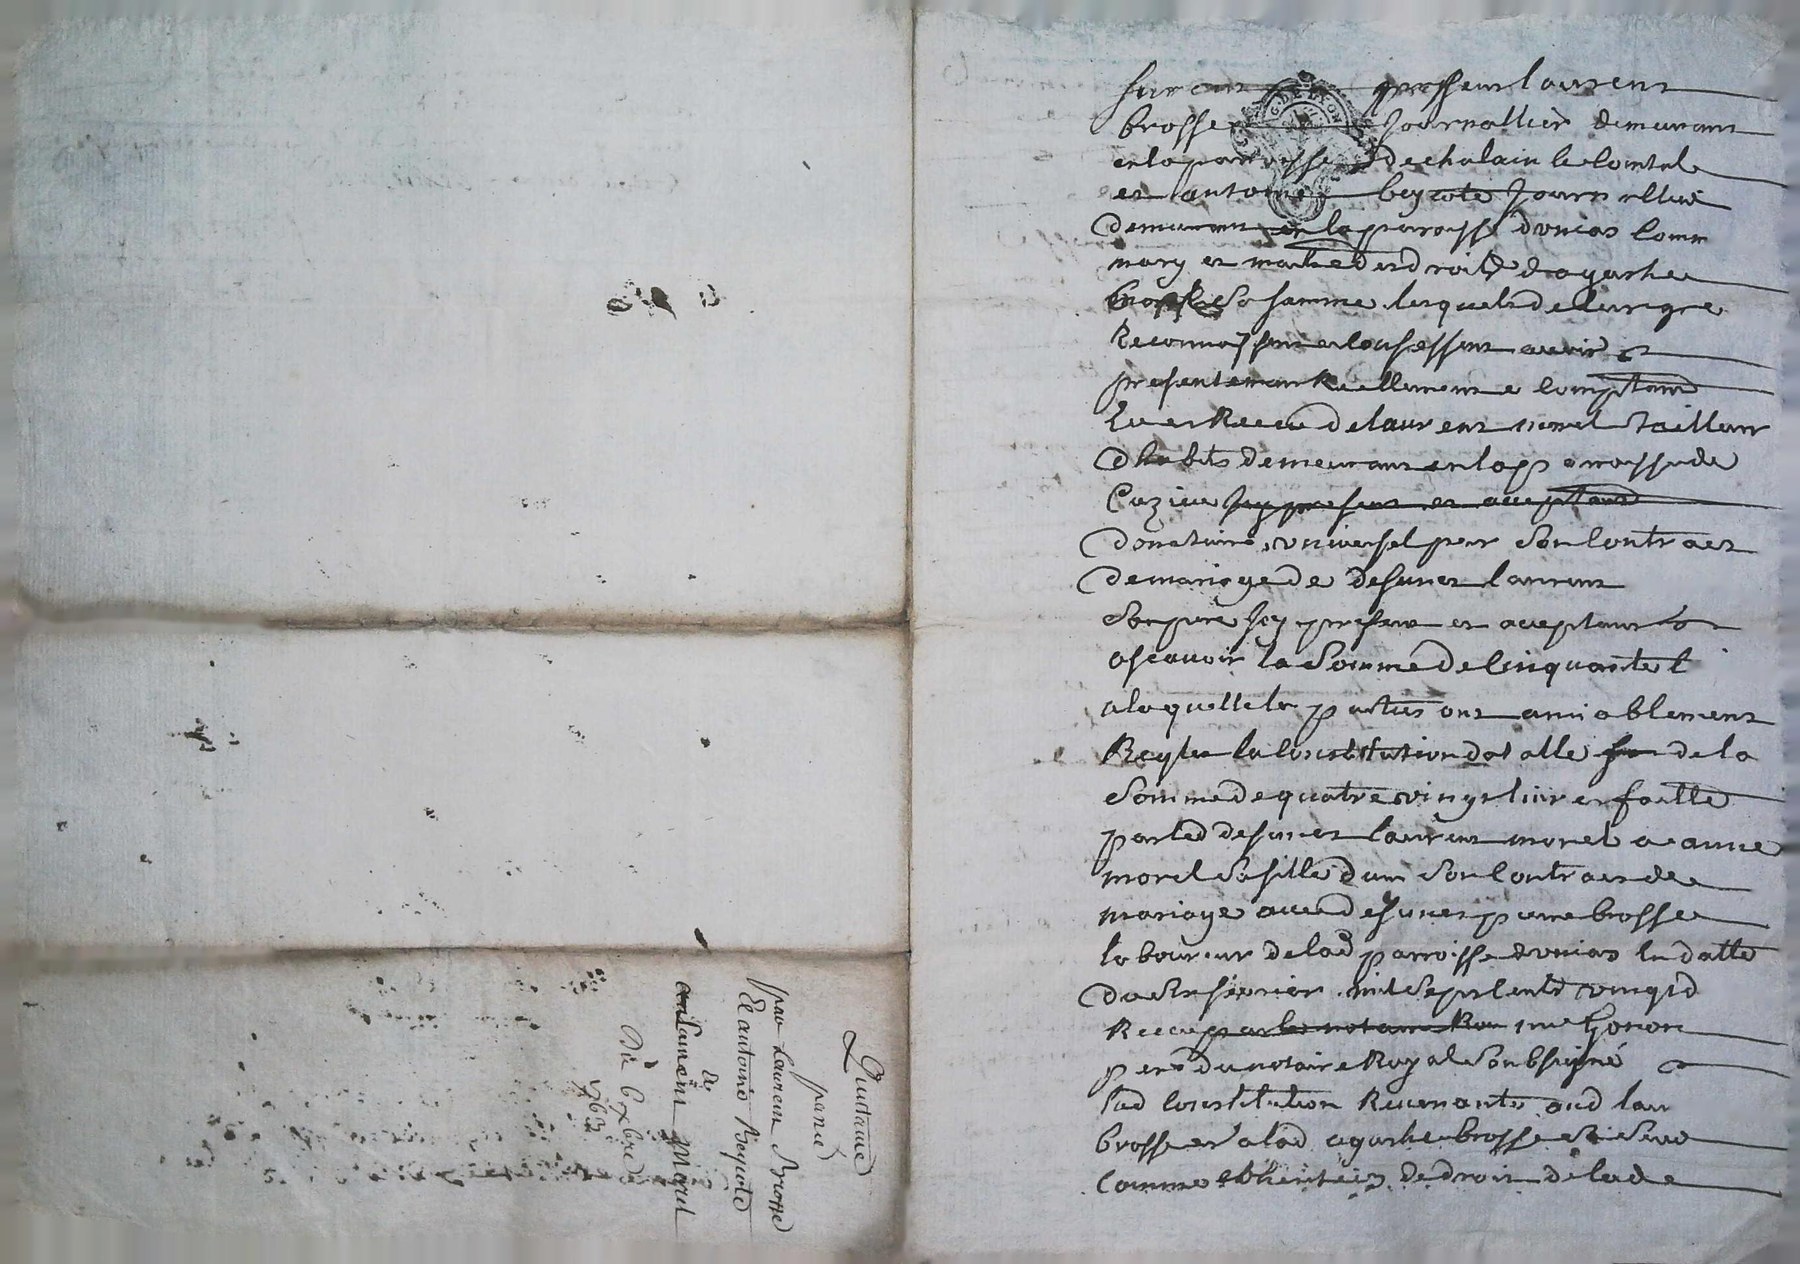 furent presens laurens
brosse Journallier demeurant
en la parroisse de chalain le Comtal
et antoine beycote Journallier
demeurant en la parroisse dunias Comm
mary et maitre des droits dagathe
brosse sa famme lesquels de leur gre
Reconnaissent et confessent avoir
presentement Reellement e comptand
Eu et Receu de laurens morel Tailleur
dhabits demeurant en la parroisse de
Cuzieu Jcy present et acceptant
donataire universel par son Contract
de mariage de defunct laurens
son pere Jcy present et acceptant
ascavoir la Somme de Cinquante l
a laquelle le parties ont amiablement
Reglee la Constitution dotalle de la
Somme de quatre vingt livres faitte
par led defunct laurens morel a anne
morel sa fille dans son Contract de
mariage avec defunct pierre brosse
laboureur de lad parroisse dunias en datte
du fevrier mil sept cents vingt
Receu par me honoré
pere du notaire Royal Soubsigné
lad Constitution Revenante aud laur
brosse et a lad agathe brosse sa Seur
Comme heritiers de droit de lade
Quittance
passée
par Laurens Brosse
Et antoine Beycote
de
Laurens Morel
Du 6 xbre
1763